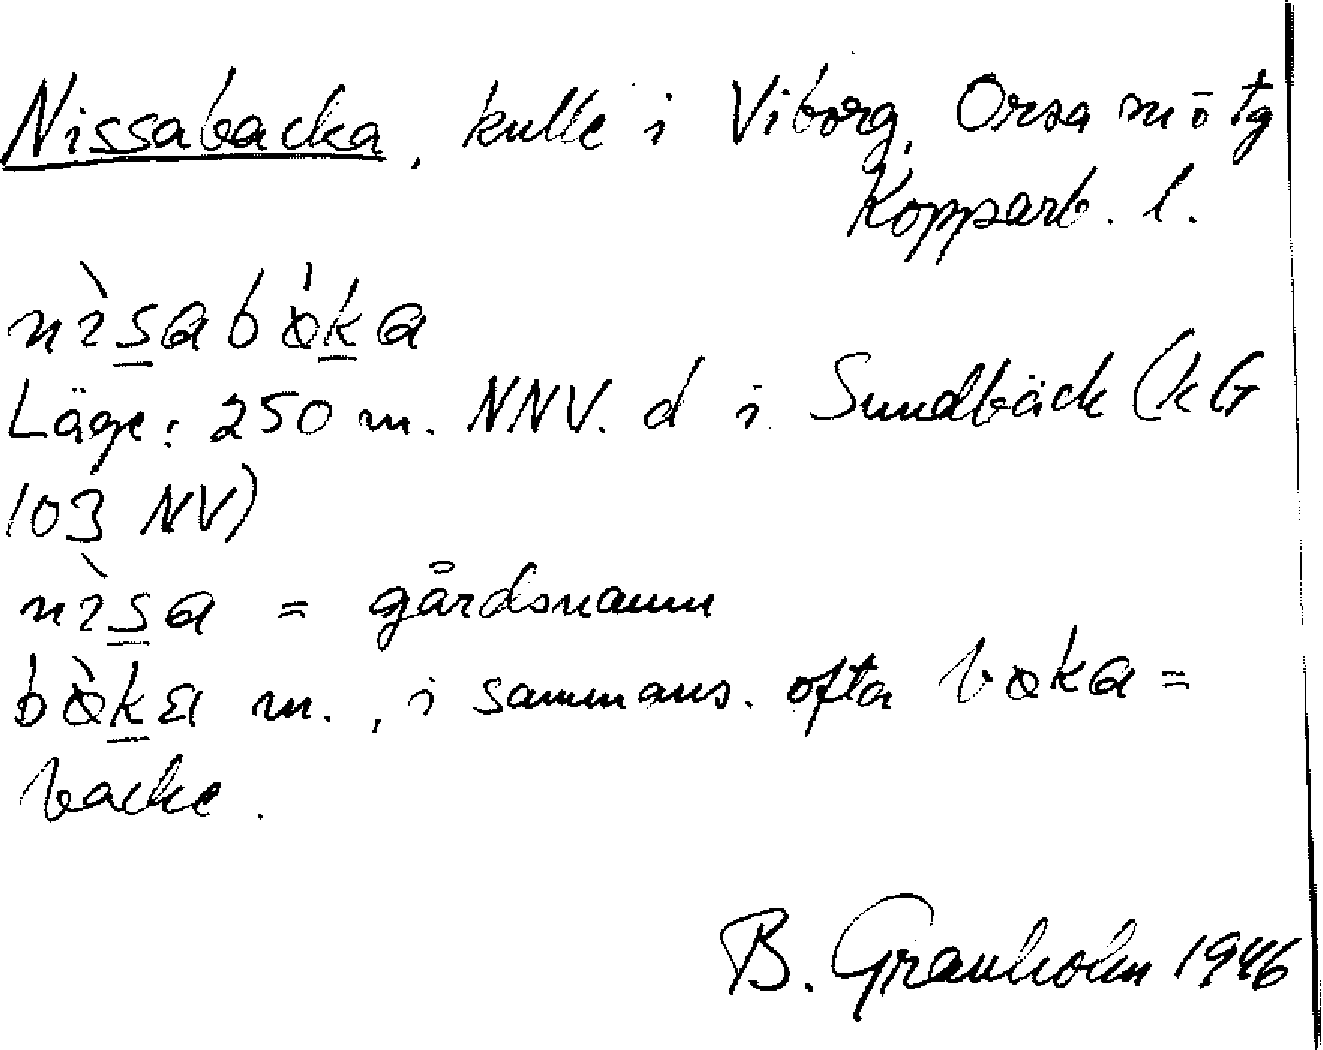 Nissabacka, kulle i Viborg, Orsa sn ö tg
Kopparb. l.
nɪ̀s̲abɑ̍k̲a
Läge: 250 m. NNV. d i Sundbäck (kG
103 NV)
nɪ̀s̲a = gårdsnamn
bɑ̀k̲ɛ m., i sammans. ofta bɑka =
backe.
B. Granholm 1946